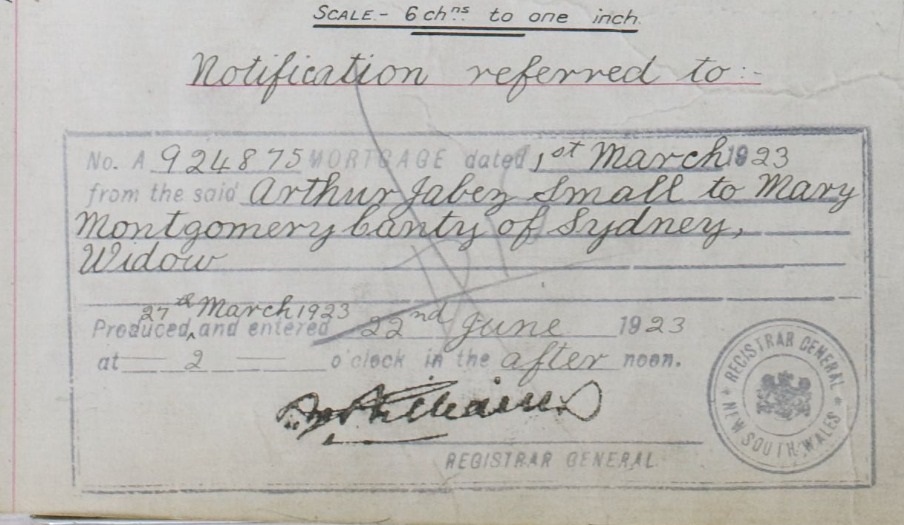 SCALE.- 6 chns to one inch.
Notification referred to:-
No. A 924875 MORTGAGE dated 1st March 1923
from the said Arthur Jabez Small to Mary
Montgomery Canty of Sydney,
Widow
27th March 1923
Produced, and entered 22nd June 1923
at 2 o'clock in the after noon.
REGISTRAR GENERAL
REGISTRAR GENERAL
NEW SOUTH WALES